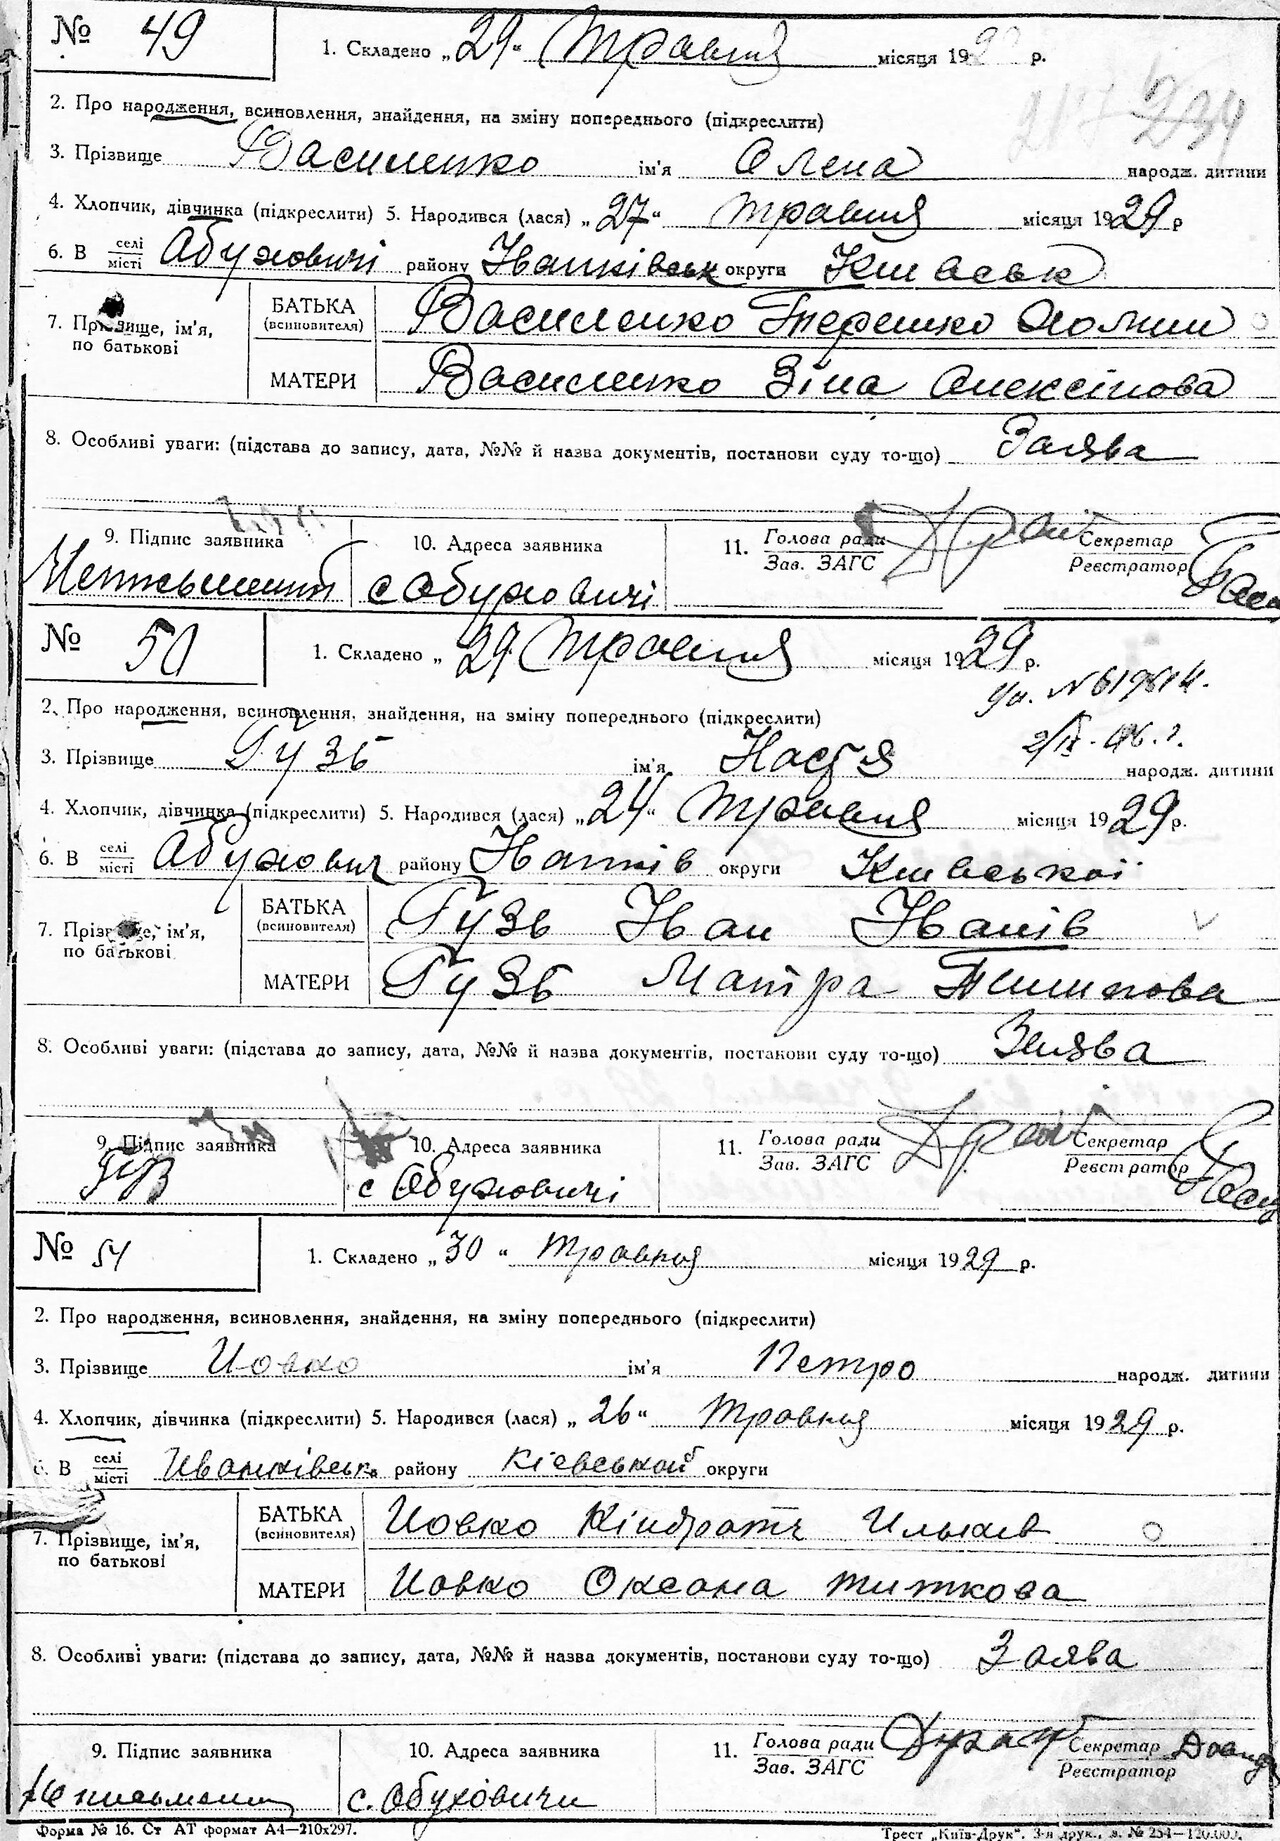 № 49
1. Складено „29“ Травня місяця 192 р.
234
2. Про народження, всиновлення, знайдення, на зміну попереднього (підкреслити)
3. Прізвище Василенко ім'я Олена народж. дитини
4. Хлопчик, дівчинка (підкреслити) 5. Народився (лася) „27“ травня місяця 1929 р
6. В селі місті Абуховичі району Іванківськ округи Києвськ
7. Прізвище, ім'я, по батькові
БАТЬКА (всиновителя) Василенко Терешко
МАТЕРИ Василенко Зіна Алексінова
8. Особливі уваги: (підстава до запису, дата, №№ й назва документів, постанови суду то-що) Заява
9. Підпис заявника 10. Адреса заявника 11. Голова ради Зав. ЗАГС Секретар Реєстратор
с Обуховичі
№ 50
1. Складено „29 Травня місяця 1929 р.
2. Про народження, всиновлення, знайдення, на зміну попереднього (підкреслити)
3. Прізвище Гузь ім'я Настя народж. дитини
4. Хлопчик, дівчинка (підкреслити) 5. Народився (лася) „24“ Травня місяця 1929 р.
6. В селі місті Абухович району Іванків округи Києвської
7. Прізвище, ім'я, по батькові
БАТЬКА (всиновителя) Гузь Іван Іванів
МАТЕРИ Гузь Матра Пилипова
8. Особливі уваги: (підстава до запису, дата, №№ й назва документів, постанови суду то-що) Заява
9. Підпис заявника 10. Адреса заявника 11. Голова ради Зав. ЗАГС Секретар Реєстратор
с Обуховичі
№ 51
1. Складено „30“ травня місяця 1929 р.
2. Про народження, всиновлення, знайдення, на зміну попереднього (підкреслити)
3. Прізвище Иовко ім'я Петро народж. дитини
4. Хлопчик, дівчинка (підкреслити) 5. Народився (лася) „26“ травня місяця 1929 р.
6. В селі місті Иванківськ району Кієвськой округи
7. Прізвище, ім'я, по батькові
БАТЬКА (всиновителя) Иовко Кіндратъ Ильков
МАТЕРИ Иовко Оксана титкова
8. Особливі уваги: (підстава до запису, дата, №№ й назва документів, постанови суду то-що) Заява
9. Підпис заявника 10. Адреса заявника 11. Голова ради Зав. ЗАГС Секретар Реєстратор
с. Обуховичи
Форма № 16. Ст АТ формат А4—210х297. Трест „Київ-Друк“. 3-я друк., з. № 254—120.000.